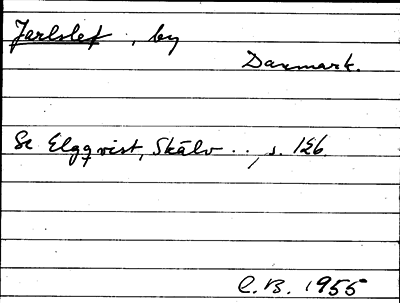 Jarlslef, by
Danmark.
Se Elgqvist, Skälv . . , s. 126.
C.B. 1955